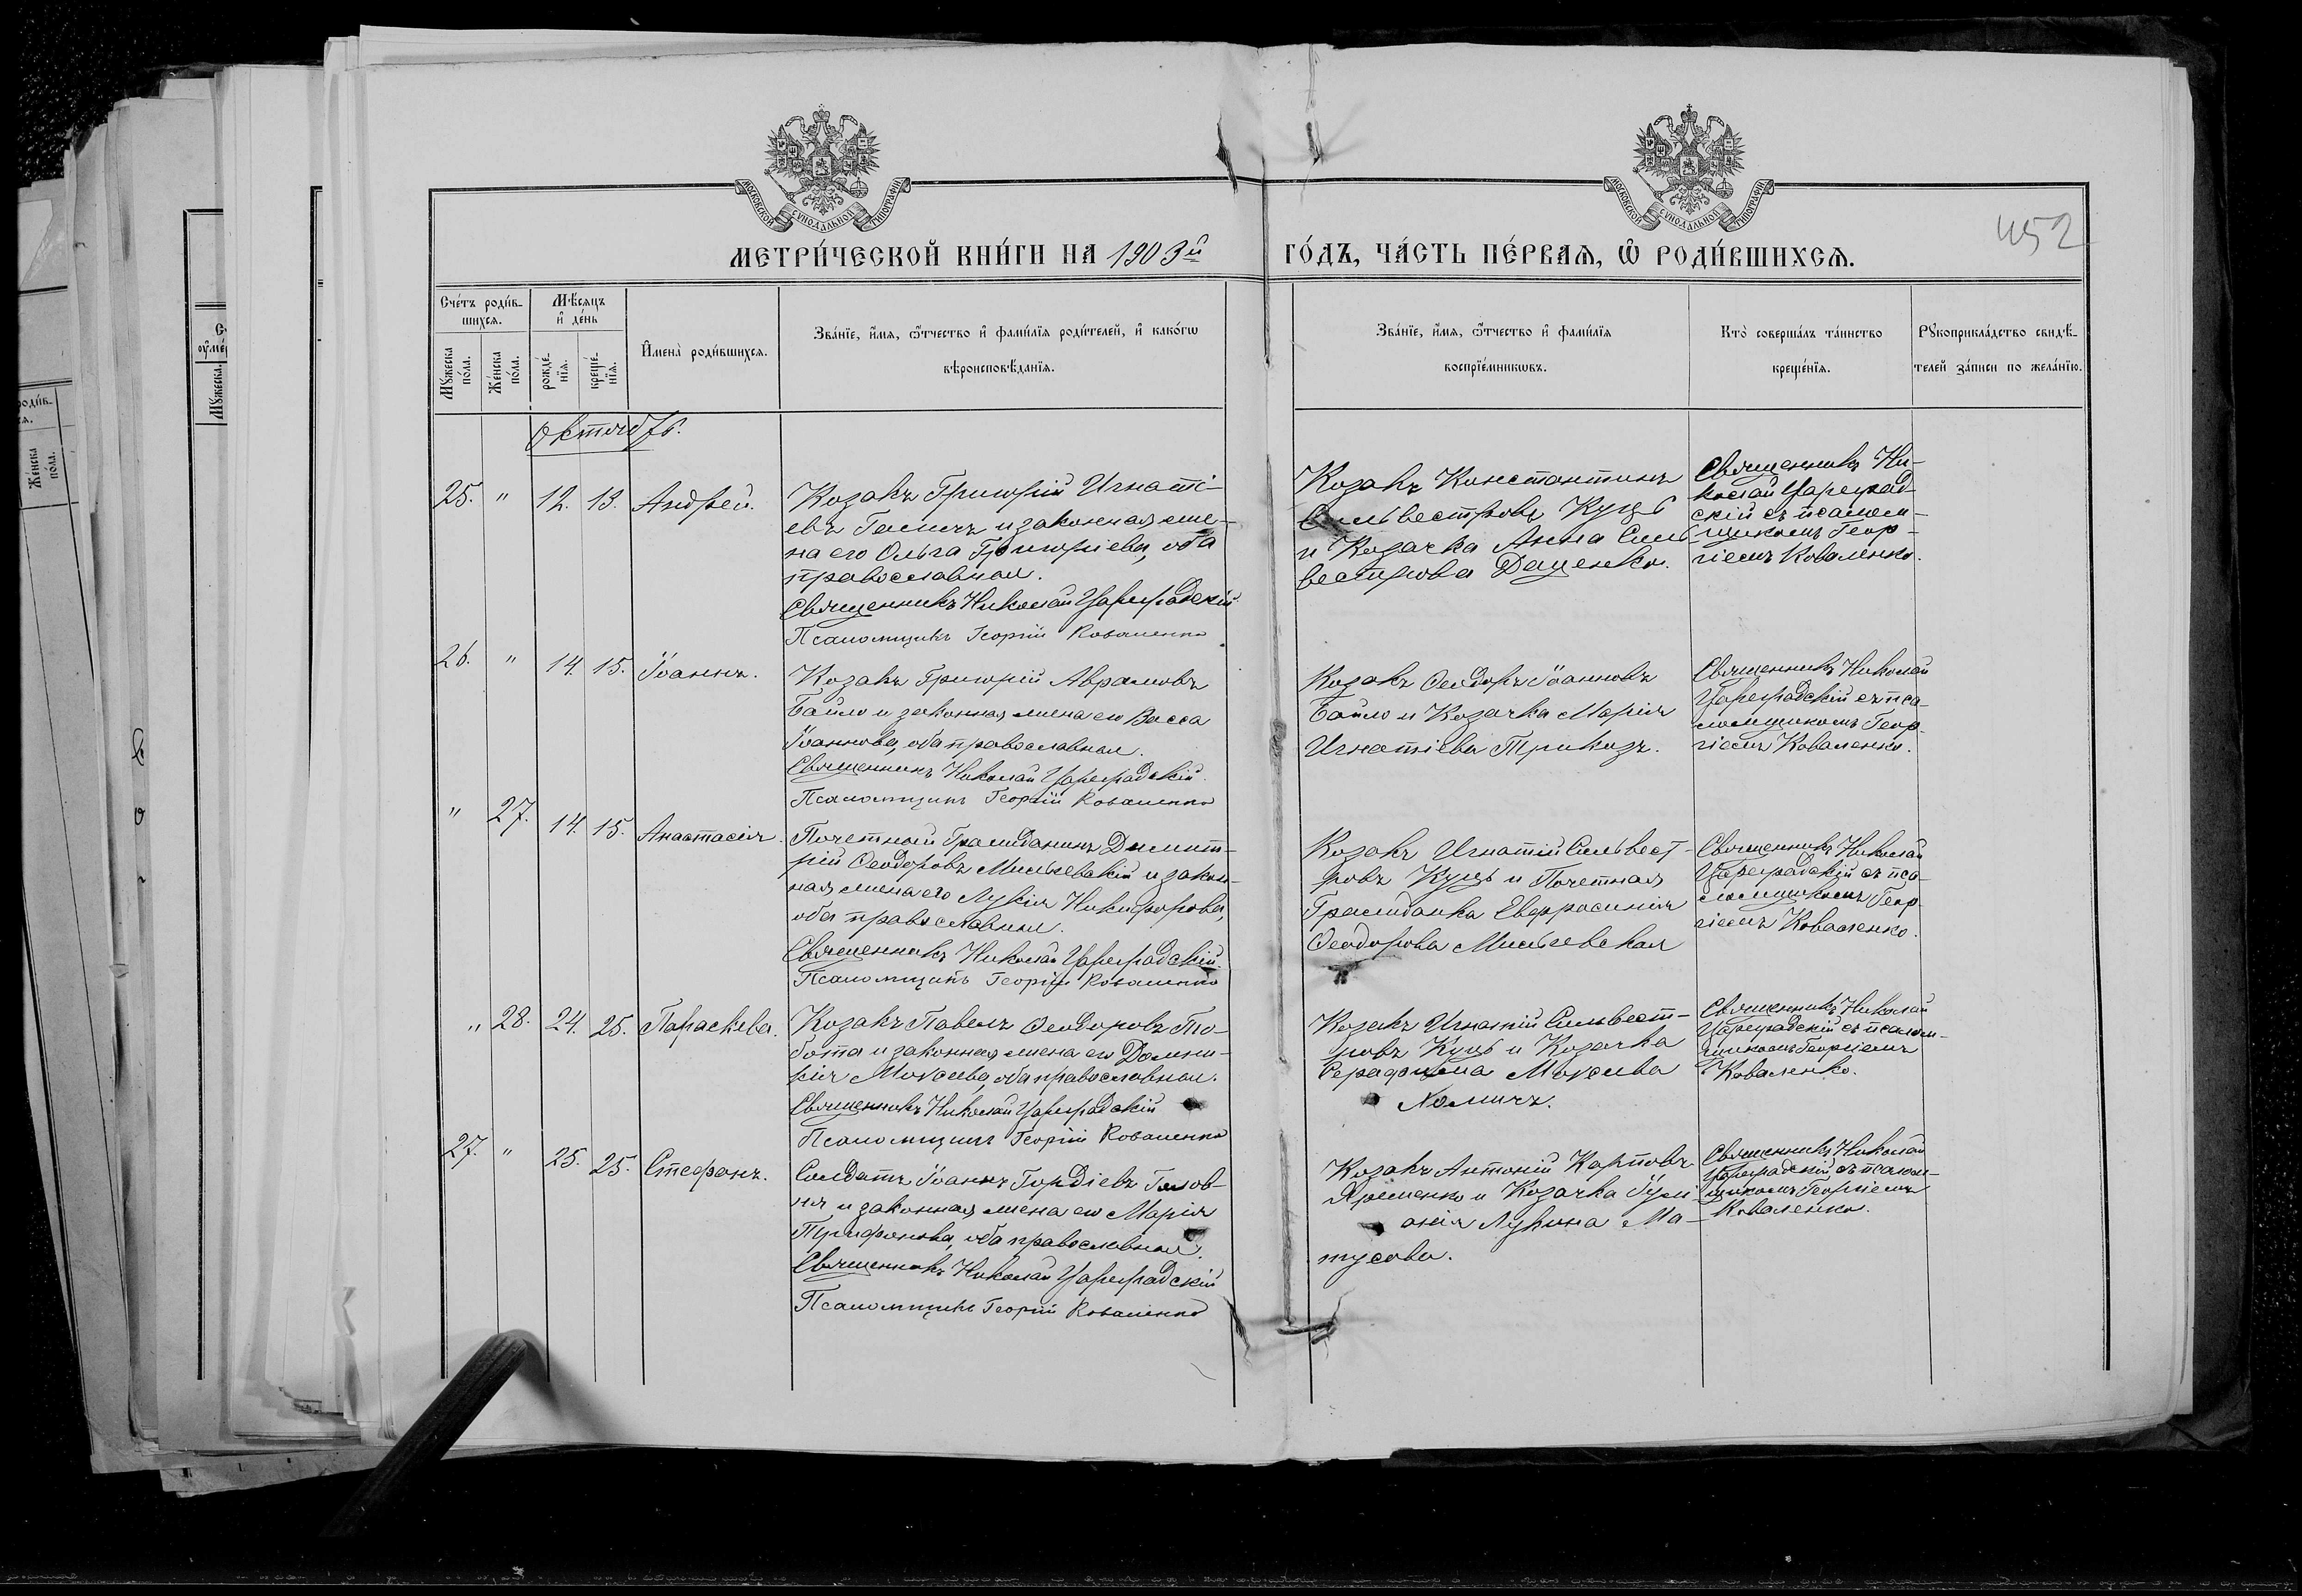 МОСКОВСКОЙ СѴНОДАЛЬНОЙ ТИПОГРАФІИ
МОСКОВСКОЙ СѴНОДАЛЬНОЙ ТИПОГРАФІИ
452
МЕТРИ́ЧЕСКОЙ КНИ́ГИ НА 1903й ГО́ДЪ, ЧА́СТЬ ПЕ́РВАѦ, Ѡ҆ РОДИ́ВШИХСѦ.
Сче́тъ роди́в-
шихсѧ.
Мꙋ́жеска по́ла.
Же́нска по́ла.
Мѣ́сѧцъ
и҆ де́нь
рожде́-
нїѧ.
креще́-
нїѧ.
И҆мена̀ роди́вшихсѧ.
Зва́нїе, и҆́мѧ, ѻ҆́тчество и҆ фами́лїѧ роди́телей, и҆ како́гѡ
вѣроисповѣ́данїѧ.
Зва́нїе, и҆́мѧ, ѻ҆́тчество и҆ фами́лїѧ
воспрїе́мникѡвъ.
Кто̀ соверша́лъ та́инство
креще́нїѧ.
Рꙋкоприкла́дство свидѣ́-
телей за́писи по жела́нїю.
Октябрь.
25. " 12. 13. Андрей.
Козакъ Григорій Игнаті-
евъ Гомичъ и законная же-
на его Ольга Григоріева, оба
православные.
Священникъ Николай Цареградскій
Псаломщикъ Георгій Коваленко
Козакъ Константинъ
Сильвестровъ Куцъ
и Козачка Анна Силь-
вестрова Даценко.
Священникъ Ни-
колай Цареград-
скій съ псалом-
щикомъ Геор-
гіемъ Коваленко.
26. " 14. 15. Іоаннъ.
Козакъ Григорій Аврамовъ
Бойло и законная жена его Васса
Іоаннова, оба православные.
Священникъ Николай Цареградскій.
Псаломщикъ Георгій Коваленко
Козакъ Ѳеодоръ Іоанновъ
Бойло и Козачка Марія
Игнатіева Приказъ.
Священникъ Николай
Цареградскій съ пса-
ломщикомъ Геор-
гіемъ Коваленко.
" 27. 14. 15. Анастасія.
Почетный Гражданинъ Димит-
рій Ѳеодоровъ Мильчевскій и закон-
ная жена его Лукія Никифорова,
оба православные.
Священникъ Николай Цареградскій.
Псаломщикъ Георгій Коваленко
Козакъ Игнатій Сильвест-
ровъ Куцъ и Почетная
Гражданка Евфросинія
Ѳеодорова Мильчевская
Священникъ Николай
Цареградскій съ пса-
ломщикомъ Геор-
гіемъ Коваленко.
" 28. 24. 25. Параскева.
Козакъ Павелъ Ѳеодоровъ
и законная жена его Домни-
кія Моѵсеева, оба православные.
Священникъ Николай Цареградскій
Псаломщикъ Георгій Коваленко
Козакъ Игнатій Сильвест-
ровъ Куцъ и Козачка
Серафима Моѵсеева
Хомичъ.
Священникъ Николай
Цареградскій съ псалом-
щикомъ Георгіемъ
Коваленко.
27. " 25. 25. Стефанъ.
Солдатъ Іоаннъ Гордіевъ Голов-
ня и законная жена его Марія
Трифонова, оба православные.
Священникъ Николай Цареградскій
Псаломщикъ Георгій Коваленко
Козакъ Антоній Карповъ
Яременко и Козачка Іулі-
анія Лукина Ма-
тусова.
Священникъ Николай
Цареградскій съ псалом-
щикомъ Георгіемъ
Коваленко.